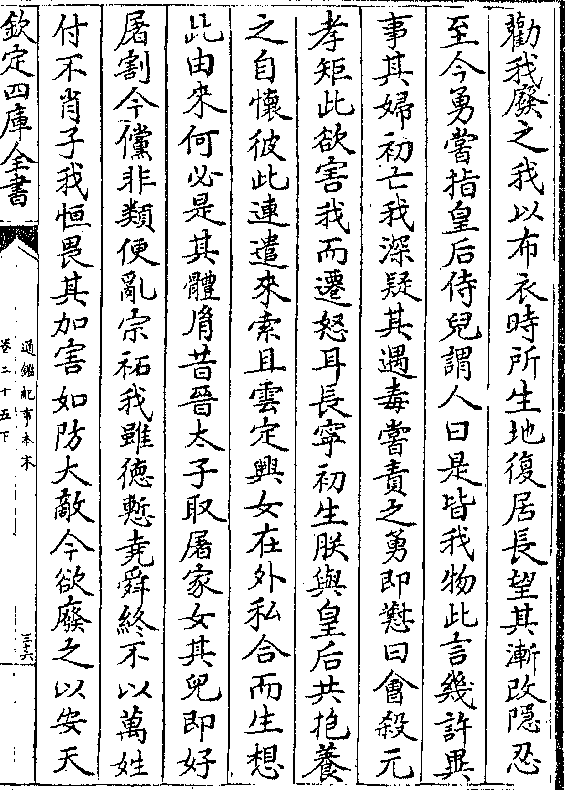 勸我廢之我以布衣時所生地復居長望其漸改隱忍
至今勇嘗指皇后侍兒謂人曰是皆我物此言幾許異
事其婦初亡我深疑其遇毒嘗責之勇即懟曰會殺元
孝矩此欲害我而遷怒耳長寧初生朕與皇后共抱養
之自懷彼此連遣來索且雲定興女在外私合而生想
此由來何必是其體㣧昔晉太子取屠家女其兒即好
屠割今儻非類便亂宗祏我雖德慙堯舜終不以萬姓
付不肖子我恒畏其加害如防大敵今欲廢之以安天
欽定四庫全書
通鑑紀事本末
卷二十五下
三六